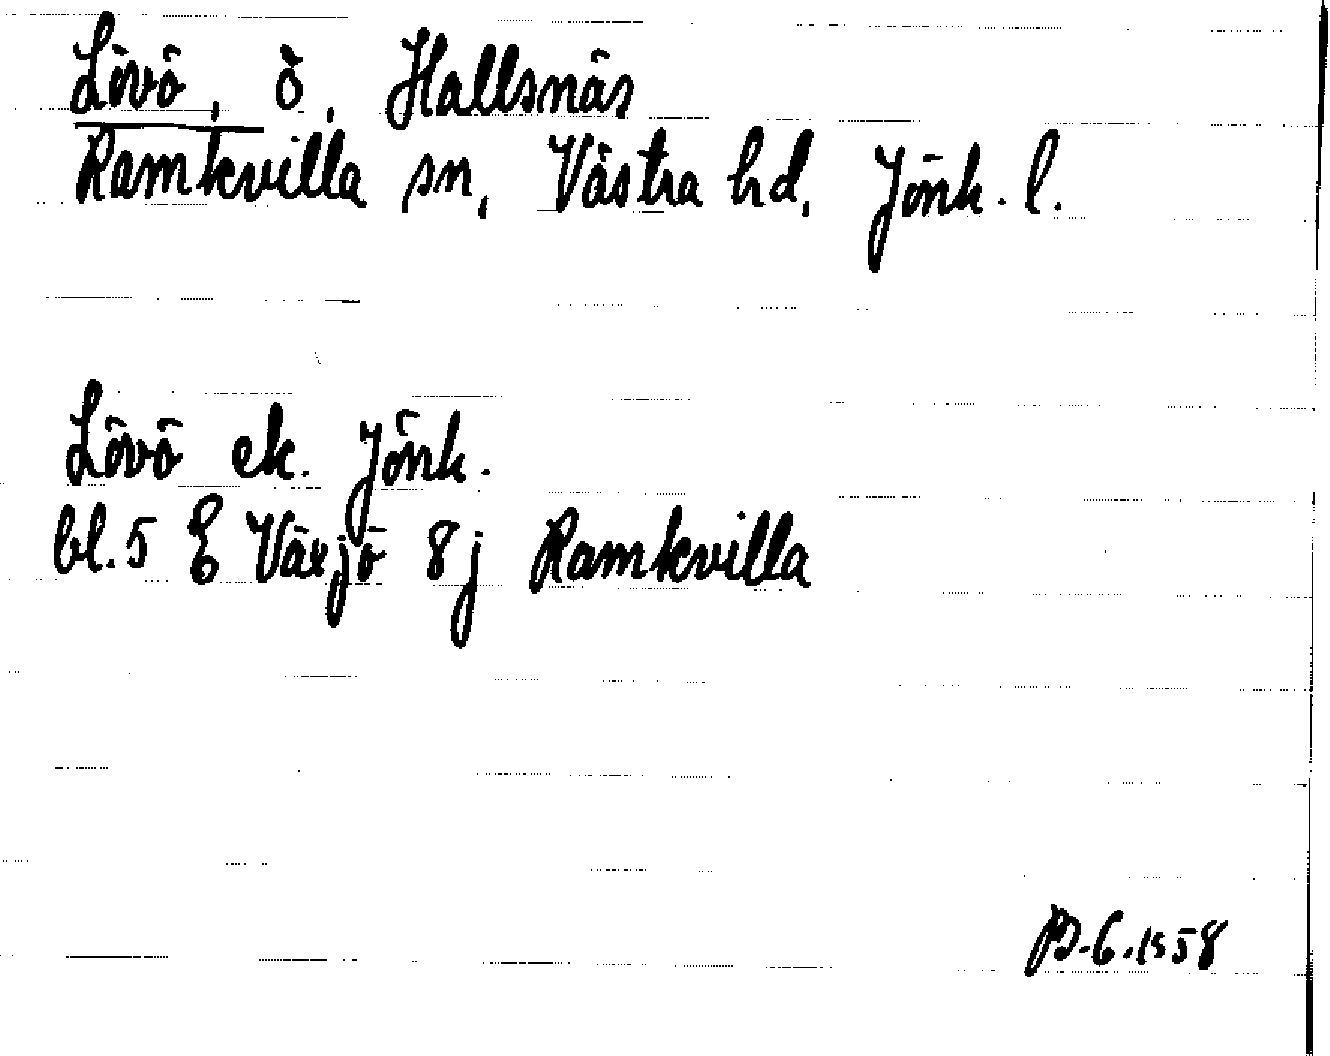 Lövö, ö, Hallsnäs
Ramkvilla sn, Västra hd, Jönk. l.
Lövö ek. Jönk.
bl. 5 E Växjö 8j Ramkvilla